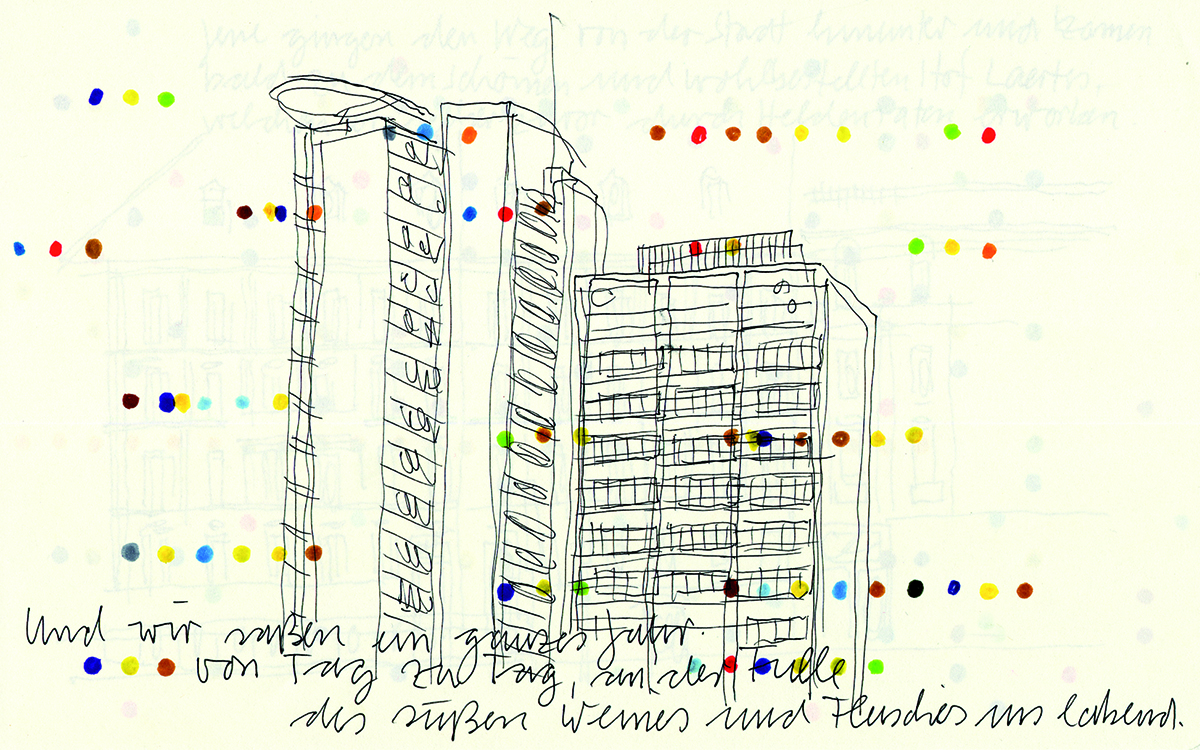 Jene gingen den Weg von der Stadt hinunter und kamen
bald dem schönen und wohlbestellten Hof Laertes,
durch Heldentaten erworben.
Und wir saßen ein ganzes Jahr.
von Tag zu Tag, an der Fülle
des süßen Weines und Fleisches uns labend.